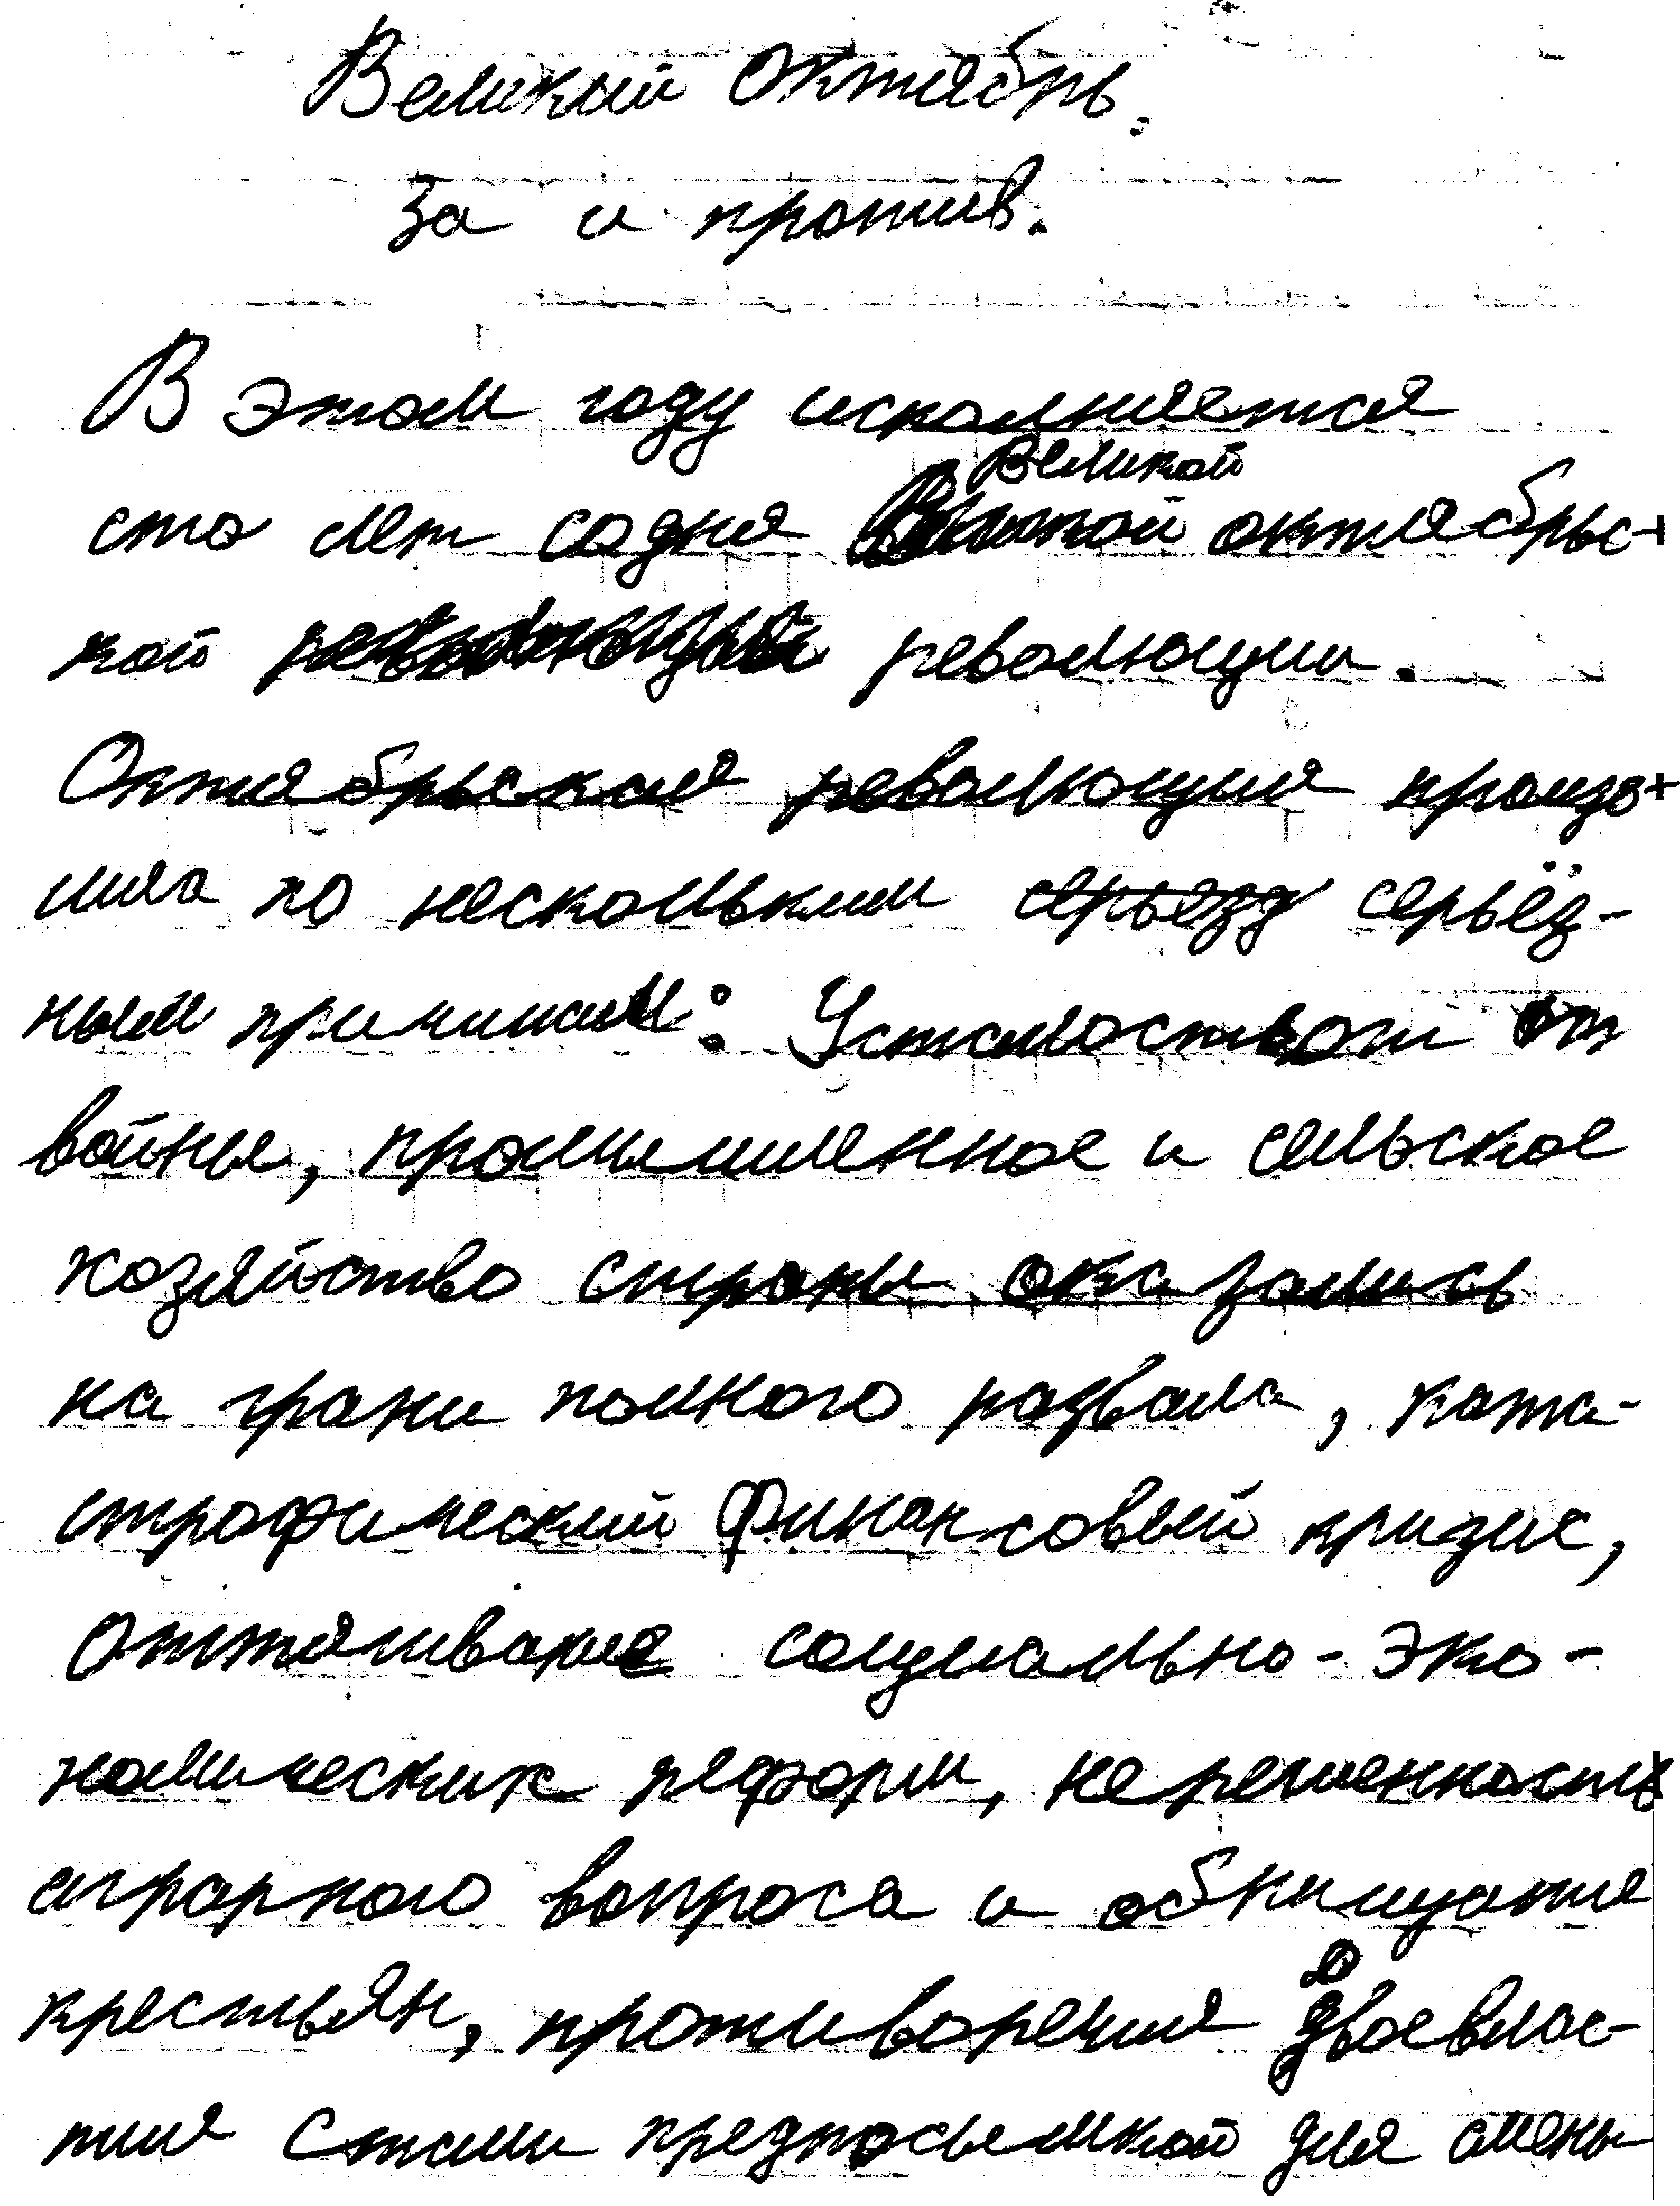 Великий Октябрь.
За и против.
В этом году исполняется
Великой
сто лет со дня октябрьс-
кой революции.
Октябрьская революция произо-
шла по нескольким серьезд серьёз-
ным причинам: Усталостьюот от
войны, промышленное и сельское
хозяйство страны оказались
на грани полного развала, ката-
строфический финансовый кризис,
Оттягивание социально-эко-
номических реформ, нерешенность
аграрного вопроса и обнищание
крестьян, противоречия двоевлас-
тия стали предпосылкой для смены